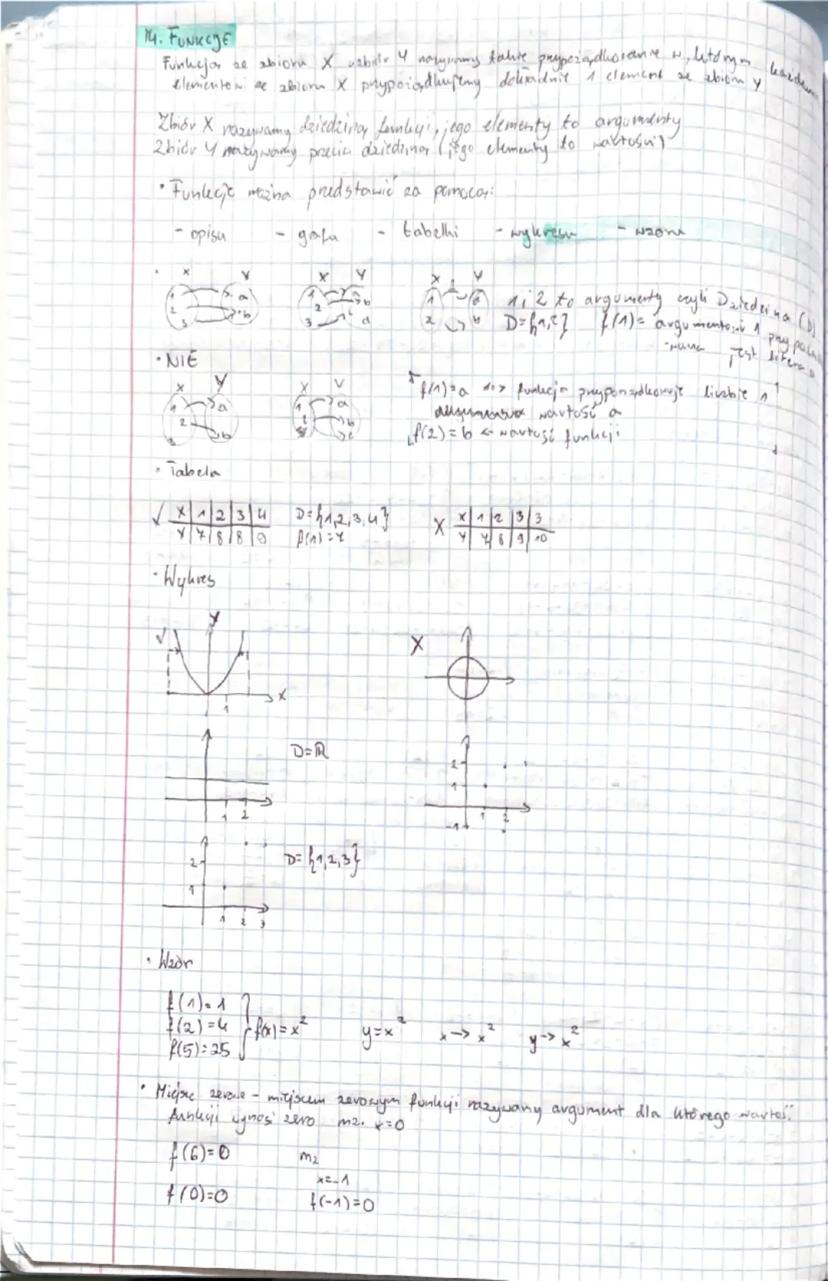 14. FUNKCJE
Funkcją ze zbioru X w zbiór Y nazywamy takie przyporządkowanie w, którym każdemu
elementowi ze zbioru X przyporządkujemy dokładnie 1 element ze zbioru Y
Zbiór X nazywamy dziedziną funkcji, jego elementy to argumenty
Zbiór Y nazywamy przeciw dziedziną (jego elementy to wartości)
• Funkcje można przedstawić za pomocą:
- opisu - grafu - tabelki - wykresu - wzoru
X Y X Y X f Y
1 2 3 a b 1 2 3 a b c d 1 2 a b
1 i 2 to argumenty czyli Dziedzina (D)
D={1,2} f(1)= argumentowi 1 przypisana
jest litera a
• NIE
X Y X Y
1 2 3 a b 1 2 a b c
f(1)=a funkcja przyporządkowuje liczbie 1
wartość a
f(2)=b ← wartość funkcji
• Tabela
√ X 1 2 3 4 D={1,2,3,4} X X 1 2 3 3
Y 7 8 8 9 f(1)=7 Y 7 8 9 10
• Wykres
√ Y X
X
1
D=ℝ 2
1
1 2 1 2
-1
2 D={1,2,3}
1
1 2 3
• Wzór
f(1)=1
f(2)=4 } f(x)=x² y=x² x→x² y→x²
f(5)=25
• Miejsce zerowe - miejscem zerowym funkcji nazywamy argument dla którego wartość
funkcji wynosi zero mz. x=0
f(6)=0 mz
x=-1
f(0)=0 f(-1)=0